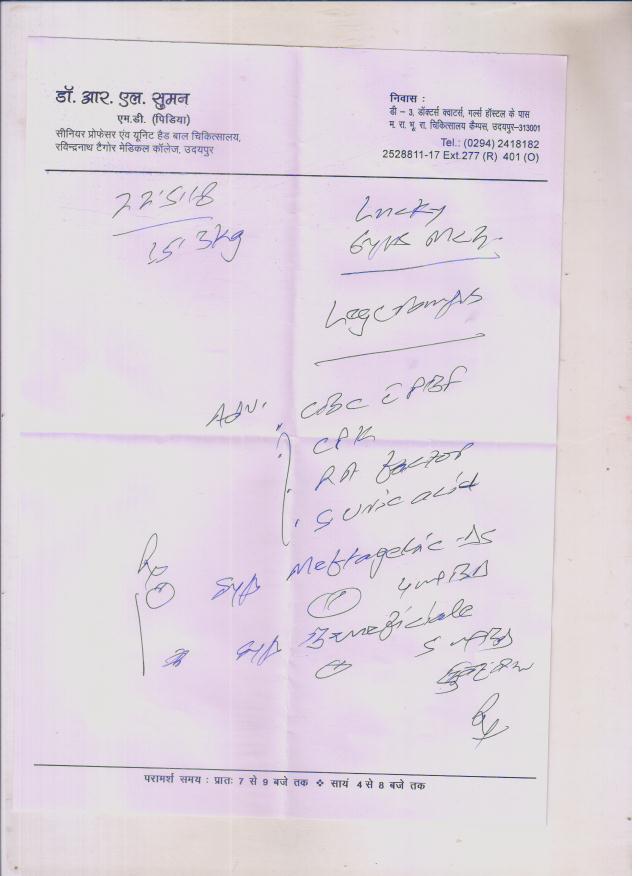 डॉ. आर. एल. सुमन
एम.डी. (पिडिया)
सीनियर प्रोफेसर एंव यूनिट हैड बाल चिकित्सालय,
रविन्द्रनाथ टैगोर मेडिकल कॉलेज, उदयपुर
निवास :
डी – 3, डॉक्टर्स क्वाटर्स, गर्ल्स हॉस्टल के पास
म. रा. भू. रा. चिकित्सालय कैम्पस, उदयपुर–313001
Tel.: (0294) 2418182
2528811-17 Ext.277 (R) 401 (O)
22.5.18
15.3kg
Lucky
Leg cramps
Adv.
CBC c PBF
CPK
RA factor
S Uric acid
Rx
Syp Meftagesic-DS
Syp
परामर्श समय : प्रातः 7 से 9 बजे तक ❖ सायं 4 से 8 बजे तक